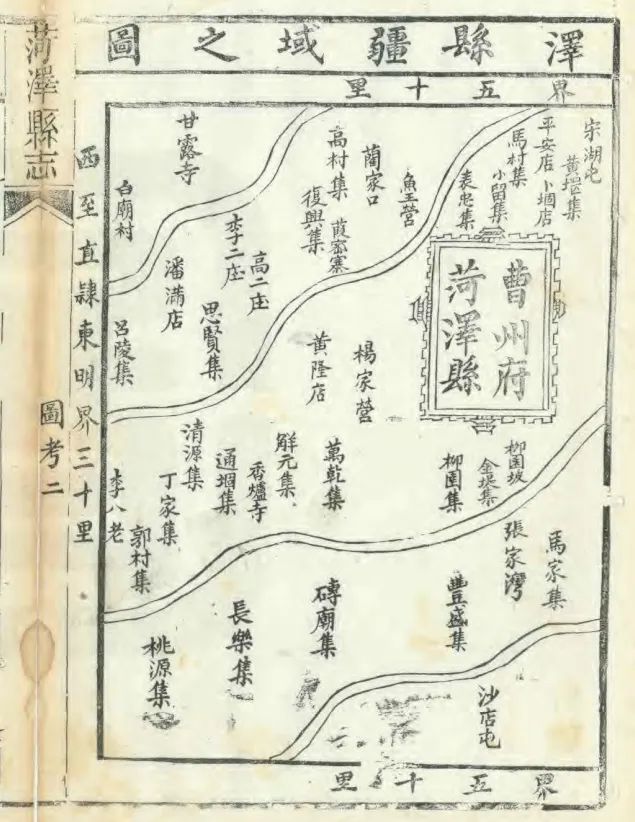 澤縣疆域之圖
界五十里
宋湖屯
黄堽集
平安店
卜堌店
馬村集
小留集
表忠集
魚王營
蘭家口
高村集
葭密寨
復興集
甘露寺
白廟村
李二庄
高二庄
潘滿店
思賢集
呂陵集
曹州府
菏澤縣
楊家營
黄隆店
柳園坡
金堤集
柳園集
萬乾集
解元集
香爐寺
通堌集
清源集
丁家集
郭村集
李八老
馬家集
張家灣
豐盛集
磚廟集
長樂集
桃源集
沙店屯
界五十里
西至直隸東明界三十里
菏澤縣志
圖考二